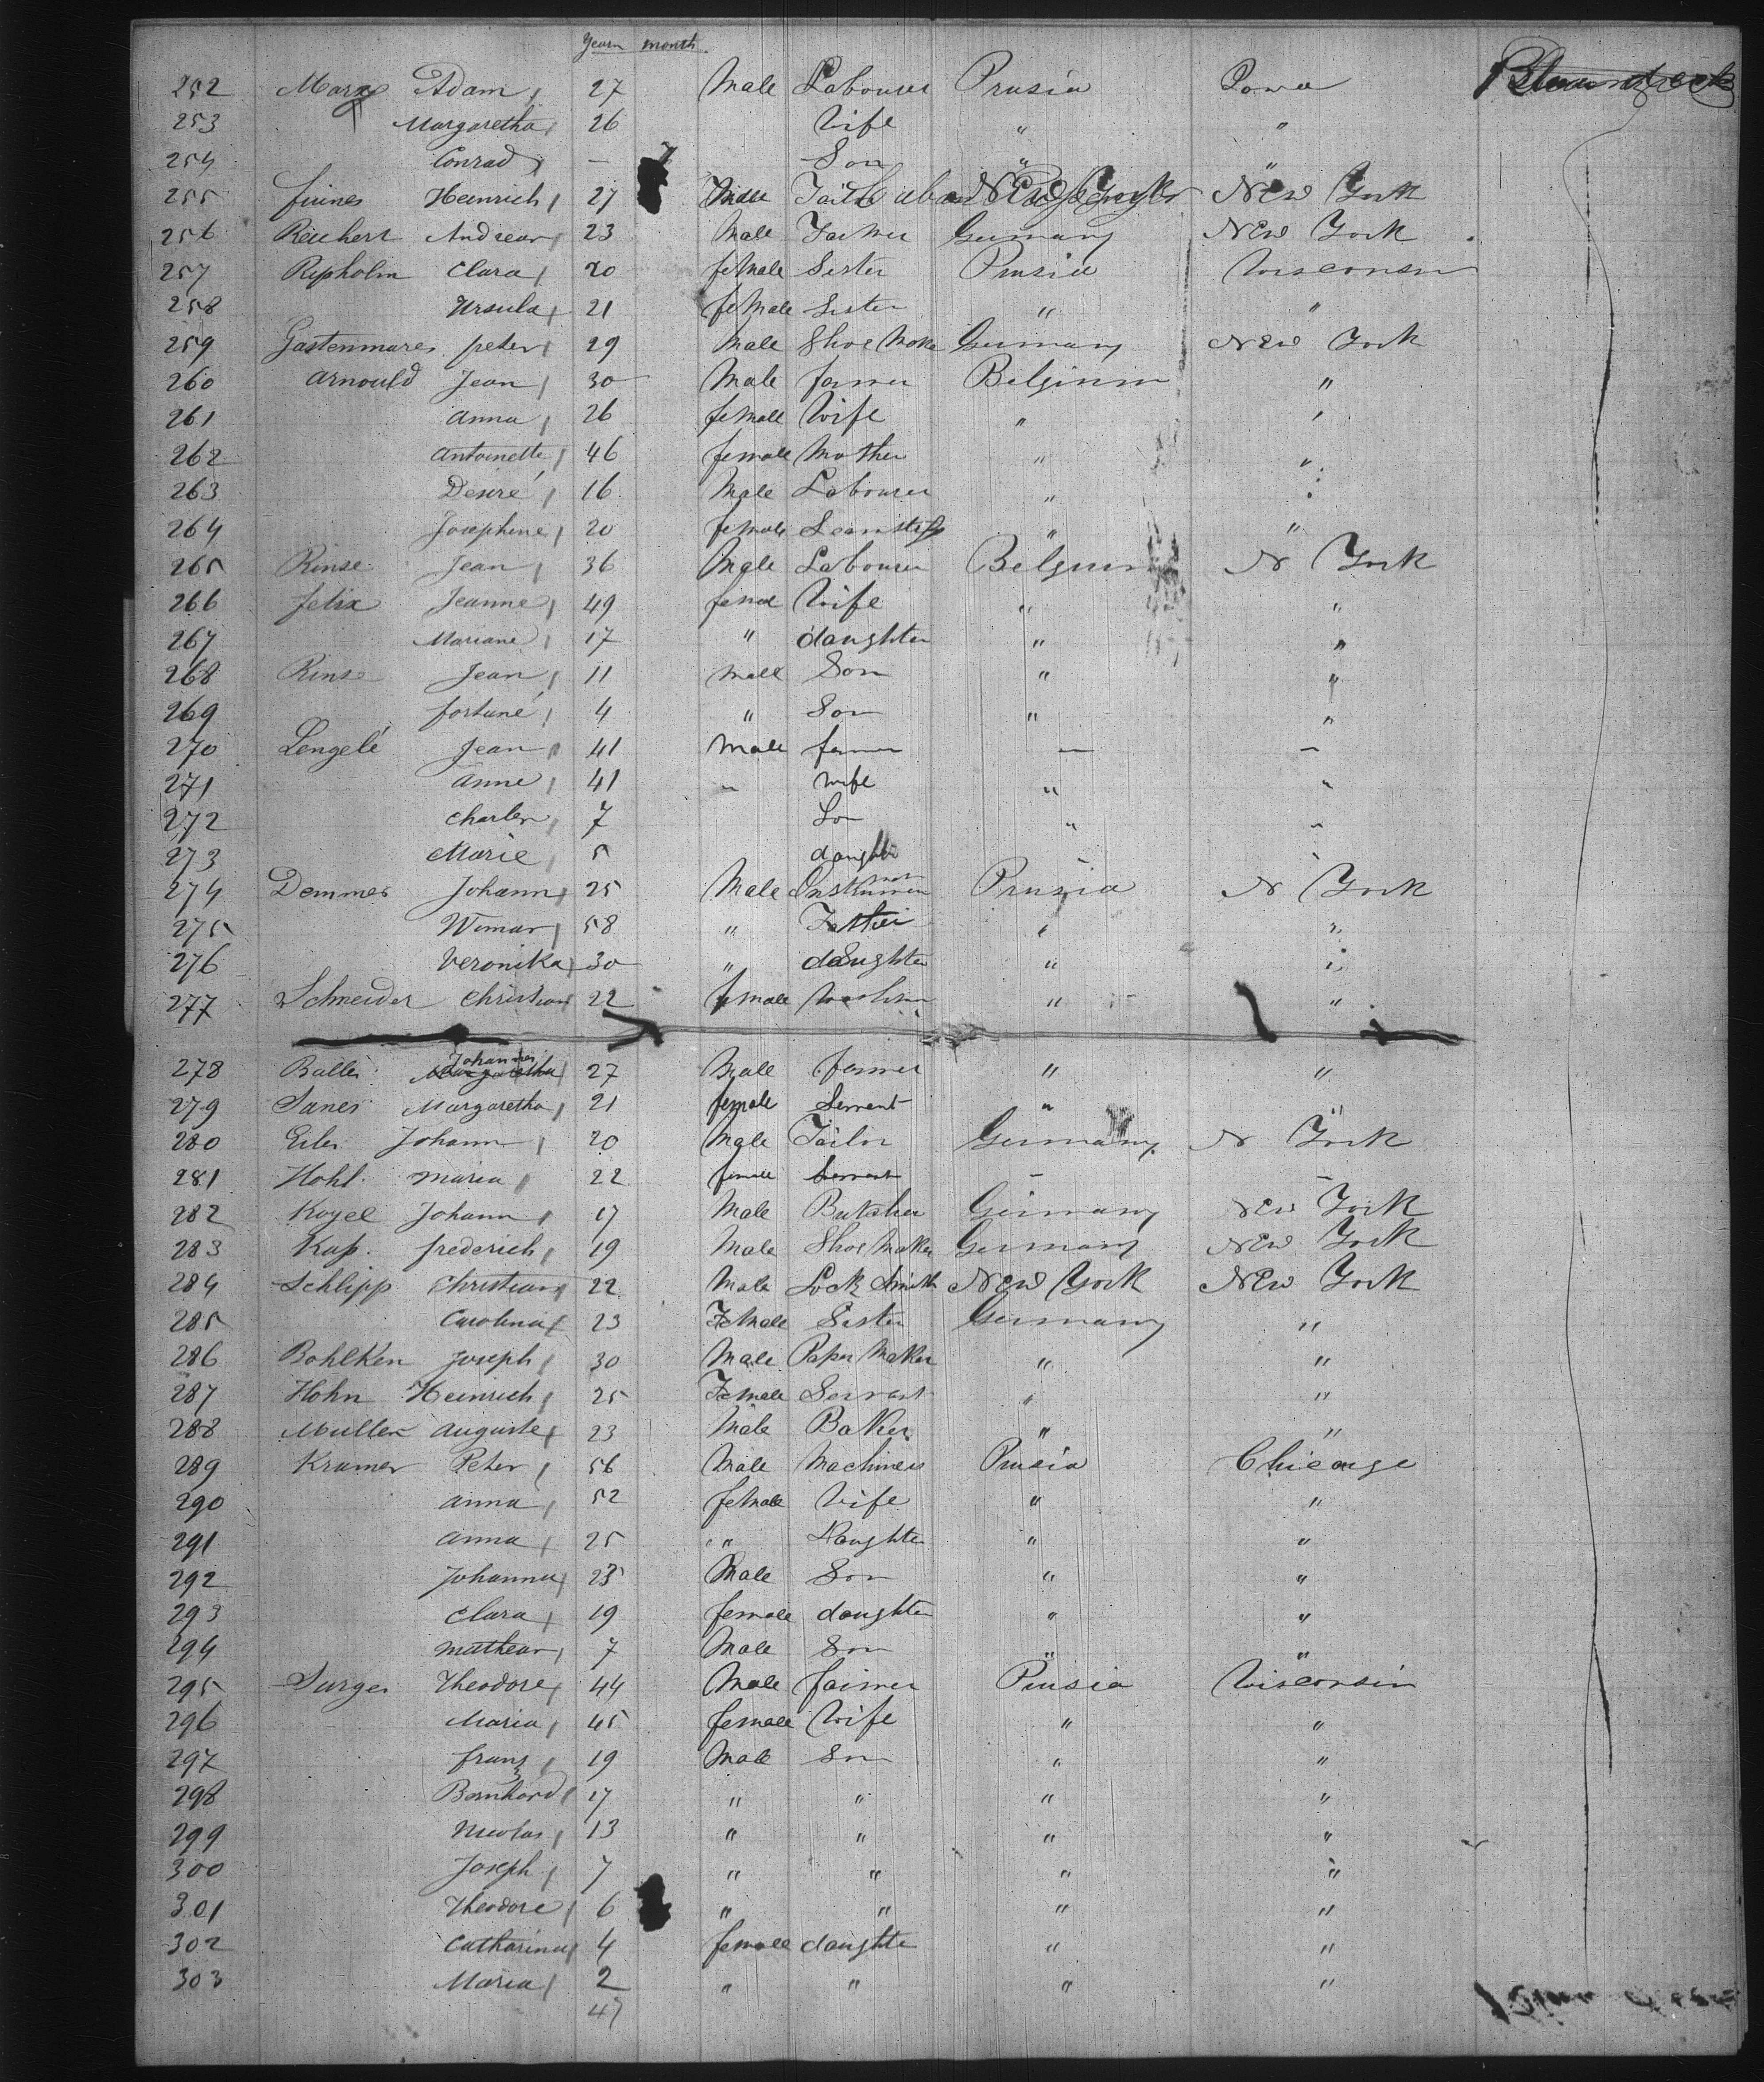 Years month
252 Marx Adam, 27 Male Labourer Prusia Iowa
253 Margaretha, 26 Wife " "
254 Conrad, — 7 Son " "
255 Heinrich, 27 Male New York
256 Reichert Andreas, 23 Male Farmer Germany New York
257 Ripholm Clara, 20 female Sister Prusia Wisconsin
258 Ursula, 21 female Sister " "
259 Gastenmares peter, 29 Male Shoe Make Germany New York
260 Arnould Jean, 30 Male farmer Belginm "
261 Anna, 26 female Wife " "
262 Antoinette, 46 female Mother " "
263 Désiré, 16 Male Labourer " "
264 Josephine, 20 female Seamstess " "
265 Rinse Jean, 36 Male Labourer Belgium N York
266 felix Jeanne, 49 femal Wife " "
267 Mariane, 17 " daughter " "
268 Rinse Jean, 11 male Son " "
269 fortuné, 4 " Son " "
270 Lengelé Jean, 41 Male farmer — —
271 Anne, 41 " wife " "
272 Charles, 7 Son " "
273 Marie, 5 daughter "
274 Demmer Johann, 25 Male Prusia N York
275 58 " Father " "
276 Veronika, 30 " daughter " "
277 Schneider Christian 22 female " "
278 Balles Johannes 27 Male farmer " "
279 Margaretha, 21 female Servent " "
280 Eiler Johann, 20 Male Tailor Germany N York
281 Hohl Maria, 22 female Servent — —
282 Kogel Johann, 17 Male Butcher Germany New York
283 Kap. frederich, 19 Male Shoe Maker Germany New York
284 Schlipp Christian, 22 Male Lock Smith New York New York
285 Carolina, 23 Female Sister Germany "
286 Bohlken Joseph, 30 Male Paper Maker " "
287 Hohn Heinrich, 25 Female Servant " "
288 Muller Auguste, 23 Male Baker " "
289 Kramer Peter, 56 Male Prusia Chicago
290 Anna, 52 female Wife " "
291 Anna, 25 " Daughter " "
292 Johanna, 23 Male Son " "
293 Clara, 19 female daughter " "
294 Matheas, 7 Male Son " "
295 Surges Theodore, 44 Male farmer Prusia Wisconsin
296 Maria, 45 female Wife " "
297 franz, 19 Male Son " "
298 Bernhard, 17 " " " "
299 Nicolas, 13 " " " "
300 Joseph, 7 " " " "
301 Theodore, 6 " " " "
302 Catharina, 4 female daughte " "
303 Maria, 2 " " " "
47